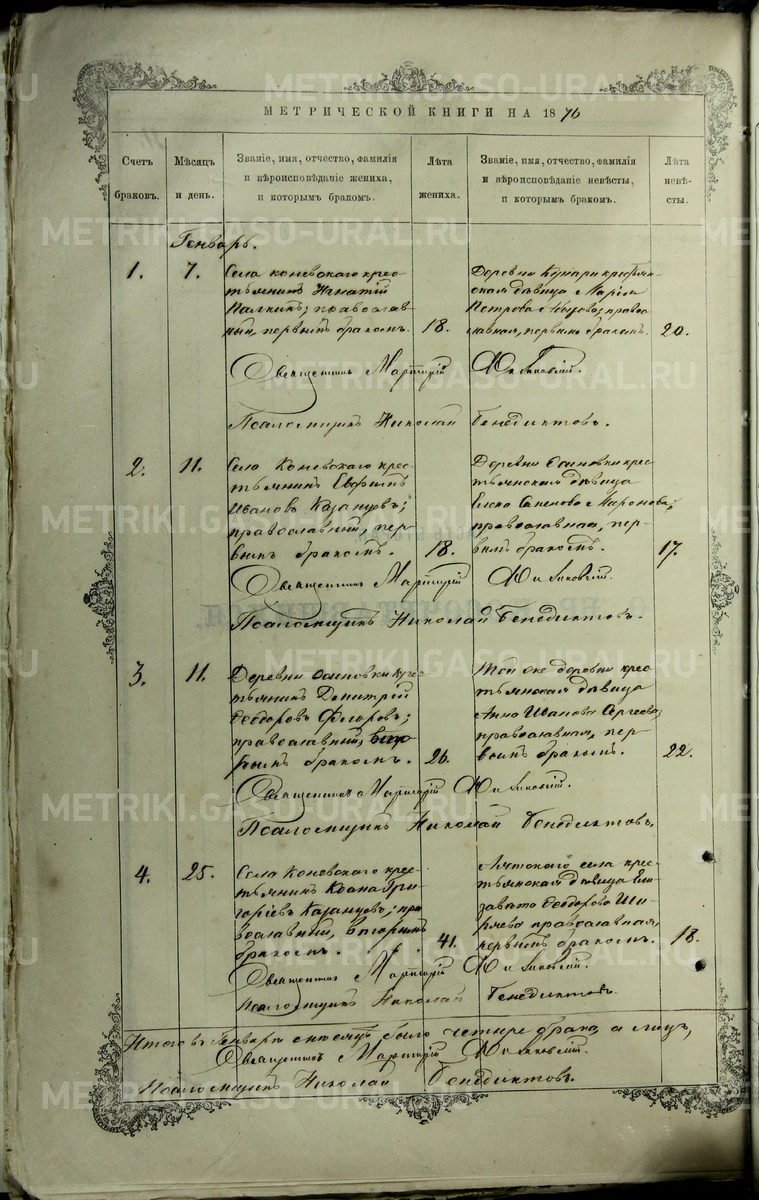 МЕТРИЧЕСКОЙ КНИГИ НА 1876
Счетъ браковъ.
Мѣсяцъ и день.
Званіе, имя, отчество, фамилія
и вѣроисповѣданіе жениха,
и которымъ бракомъ.
Лѣта жениха.
Званіе, имя, отчество, фамилія
и вѣроисповѣданіе невѣсты,
и которымъ бракомъ.
Лѣта невѣ-
сты.
Генварь.
1.
7.
Села коневскаго крес-
тьянинъ Игнатій
Палкинъ; православ-
ный, первымъ бракомъ.
18.
Деревни крестьян-
ская дѣвица Марія
Петрова правос-
лавная, первымъ бракомъ.
20.
Священникъ Мартирій
Псаломщикъ Николай Бенедиктовъ.
2.
11.
Села Коневскаго крес-
тьянинъ Евфимъ
Ивановъ Казанцовъ;
православный, пер-
вымъ бракомъ.
18.
Деревни Осиновки крес-
тьянская дѣвица
Елена Семенова Миронова;
православная, пер-
вымъ бракомъ.
17.
Священникъ Мартирій
Псаломщикъ Николай Бенедиктовъ.
3.
11.
Деревни Осиновки крес-
тьянинъ Димитрій
Ѳеодоровъ Флоровъ;
православный, вто-
рымъ бракомъ.
26.
Той же деревни крес-
тьянская дѣвица
Анна Иванова Сергеева;
православная, пер-
вымъ бракомъ.
22.
Священникъ Мартирій
Псаломщикъ Николай Бенедиктовъ.
4.
25.
Села Коневскаго крес-
тьянинъ Гри-
горіевъ Казанцовъ; пра-
вославный, вторымъ
бракомъ.
41.
Аятскаго села крес-
тьянская дѣвица Ели-
завета Ѳеодорова Ши-
ряева православная,
первымъ бракомъ.
18.
Священникъ Мартирій
Псаломщикъ Николай Бенедиктовъ.
Итого въ Генварѣ мѣсяцѣ было четыре брака, а лицъ,
Священникъ Мартирій
Псаломщикъ Николай Бенедиктовъ.
METRIKI.GASO-URAL.RU